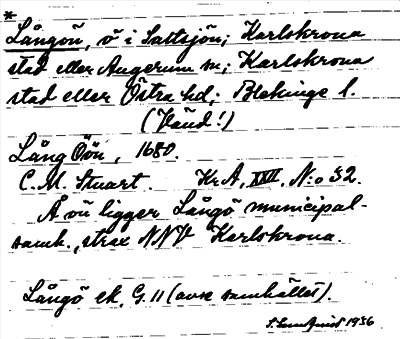 *
Långön, ö i Saltsjön; Karlskrona
stad eller Augerum sn; Karlskrona
stad eller Östra hd; Blekinge l.
(Vänd!)
Lång Öön, 1680.
C. M. Stuart. Kr.A, XXII. N:o 32.
Å ön ligger Långö municipal-
samh., strax NNV Karlskrona.
Långö ek. G. 11 (avse samhället).
1956